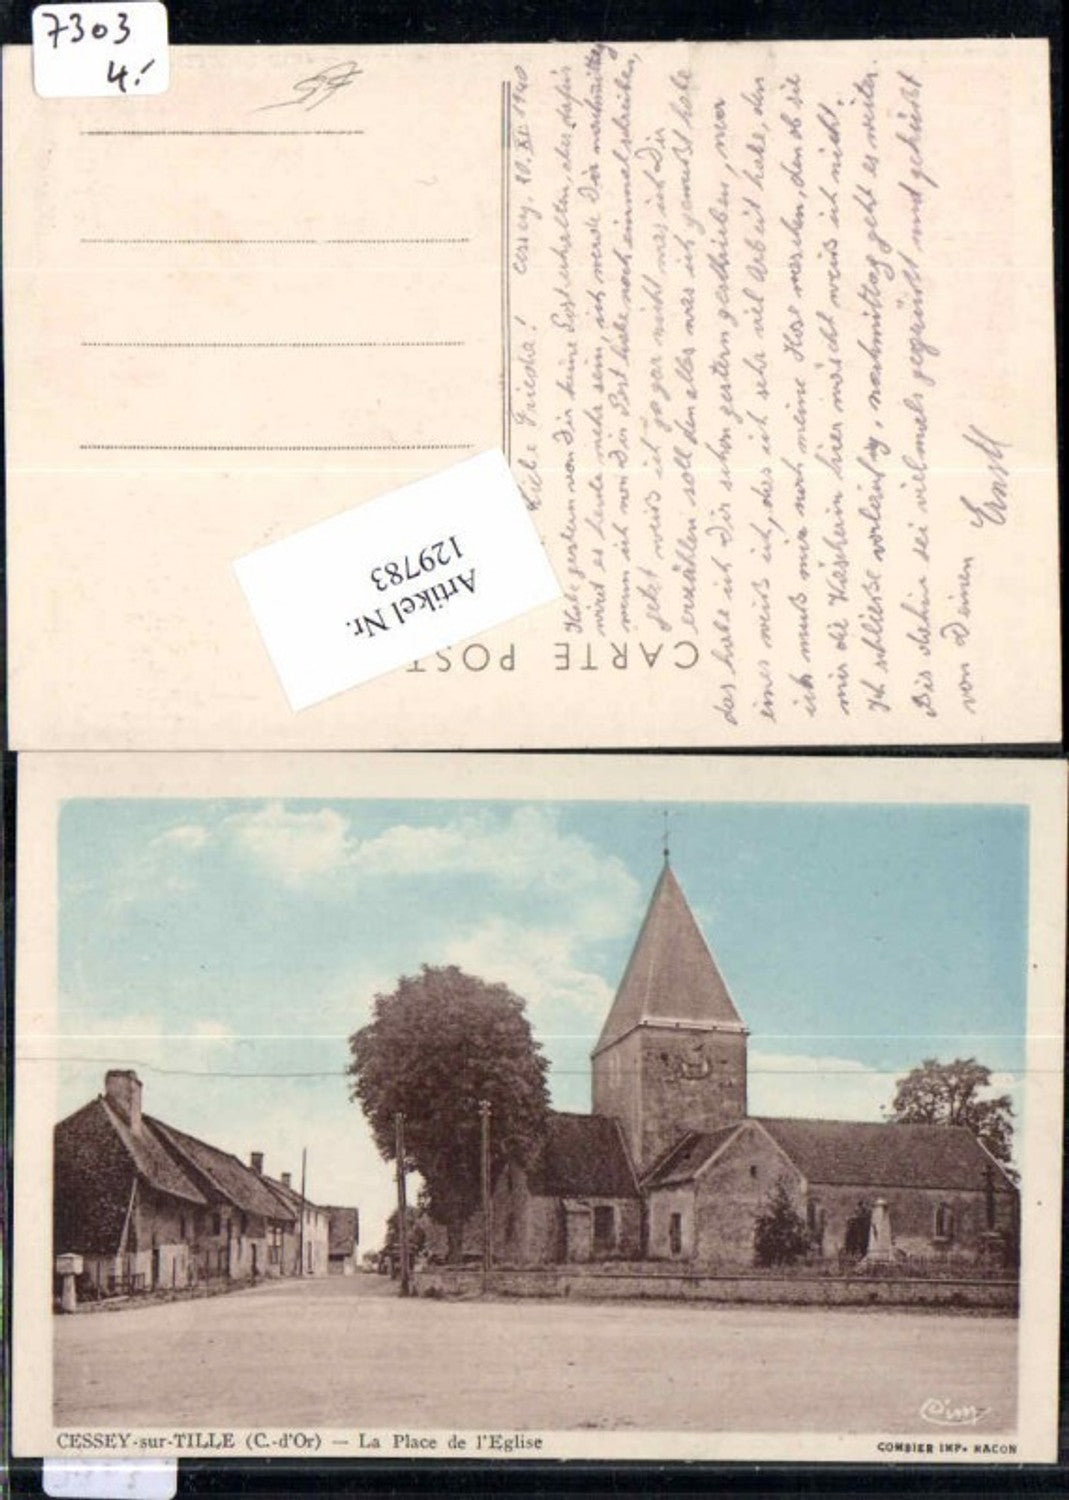 7303
4.-
Cessey, 20. XI. 1940
Liebe Frieda!
Habe gestern von Dir keine Post erhalten, aber dafür
wird es heute mehr sein, ich werde Dir nachmittag
wenn ich von Dir Post habe noch einmal schreiben,
jetzt weiß ich ja gar nicht was ich Dir
erzählen soll den alles was ich gewußt habe
das habe ich Dir schon gestern geschrieben, nur
eines weiß ich, das ich sehr viel Arbeit habe, den
ich muß mir noch meine Hose waschen, den ob sie
mir die hier wäscht weiß ich nicht.
Ich schließe vorläufig, nachmittag geht es weiter.
Bis dahin sei vielmals gegrüßt und geküsst
von Deinen
Ernstl
CARTE POST
Artikel Nr.
129783
CESSEY-sur-TILLE (C.-d'Or) — La Place de l'Eglise
Cim
COMBIER IMP. MACON